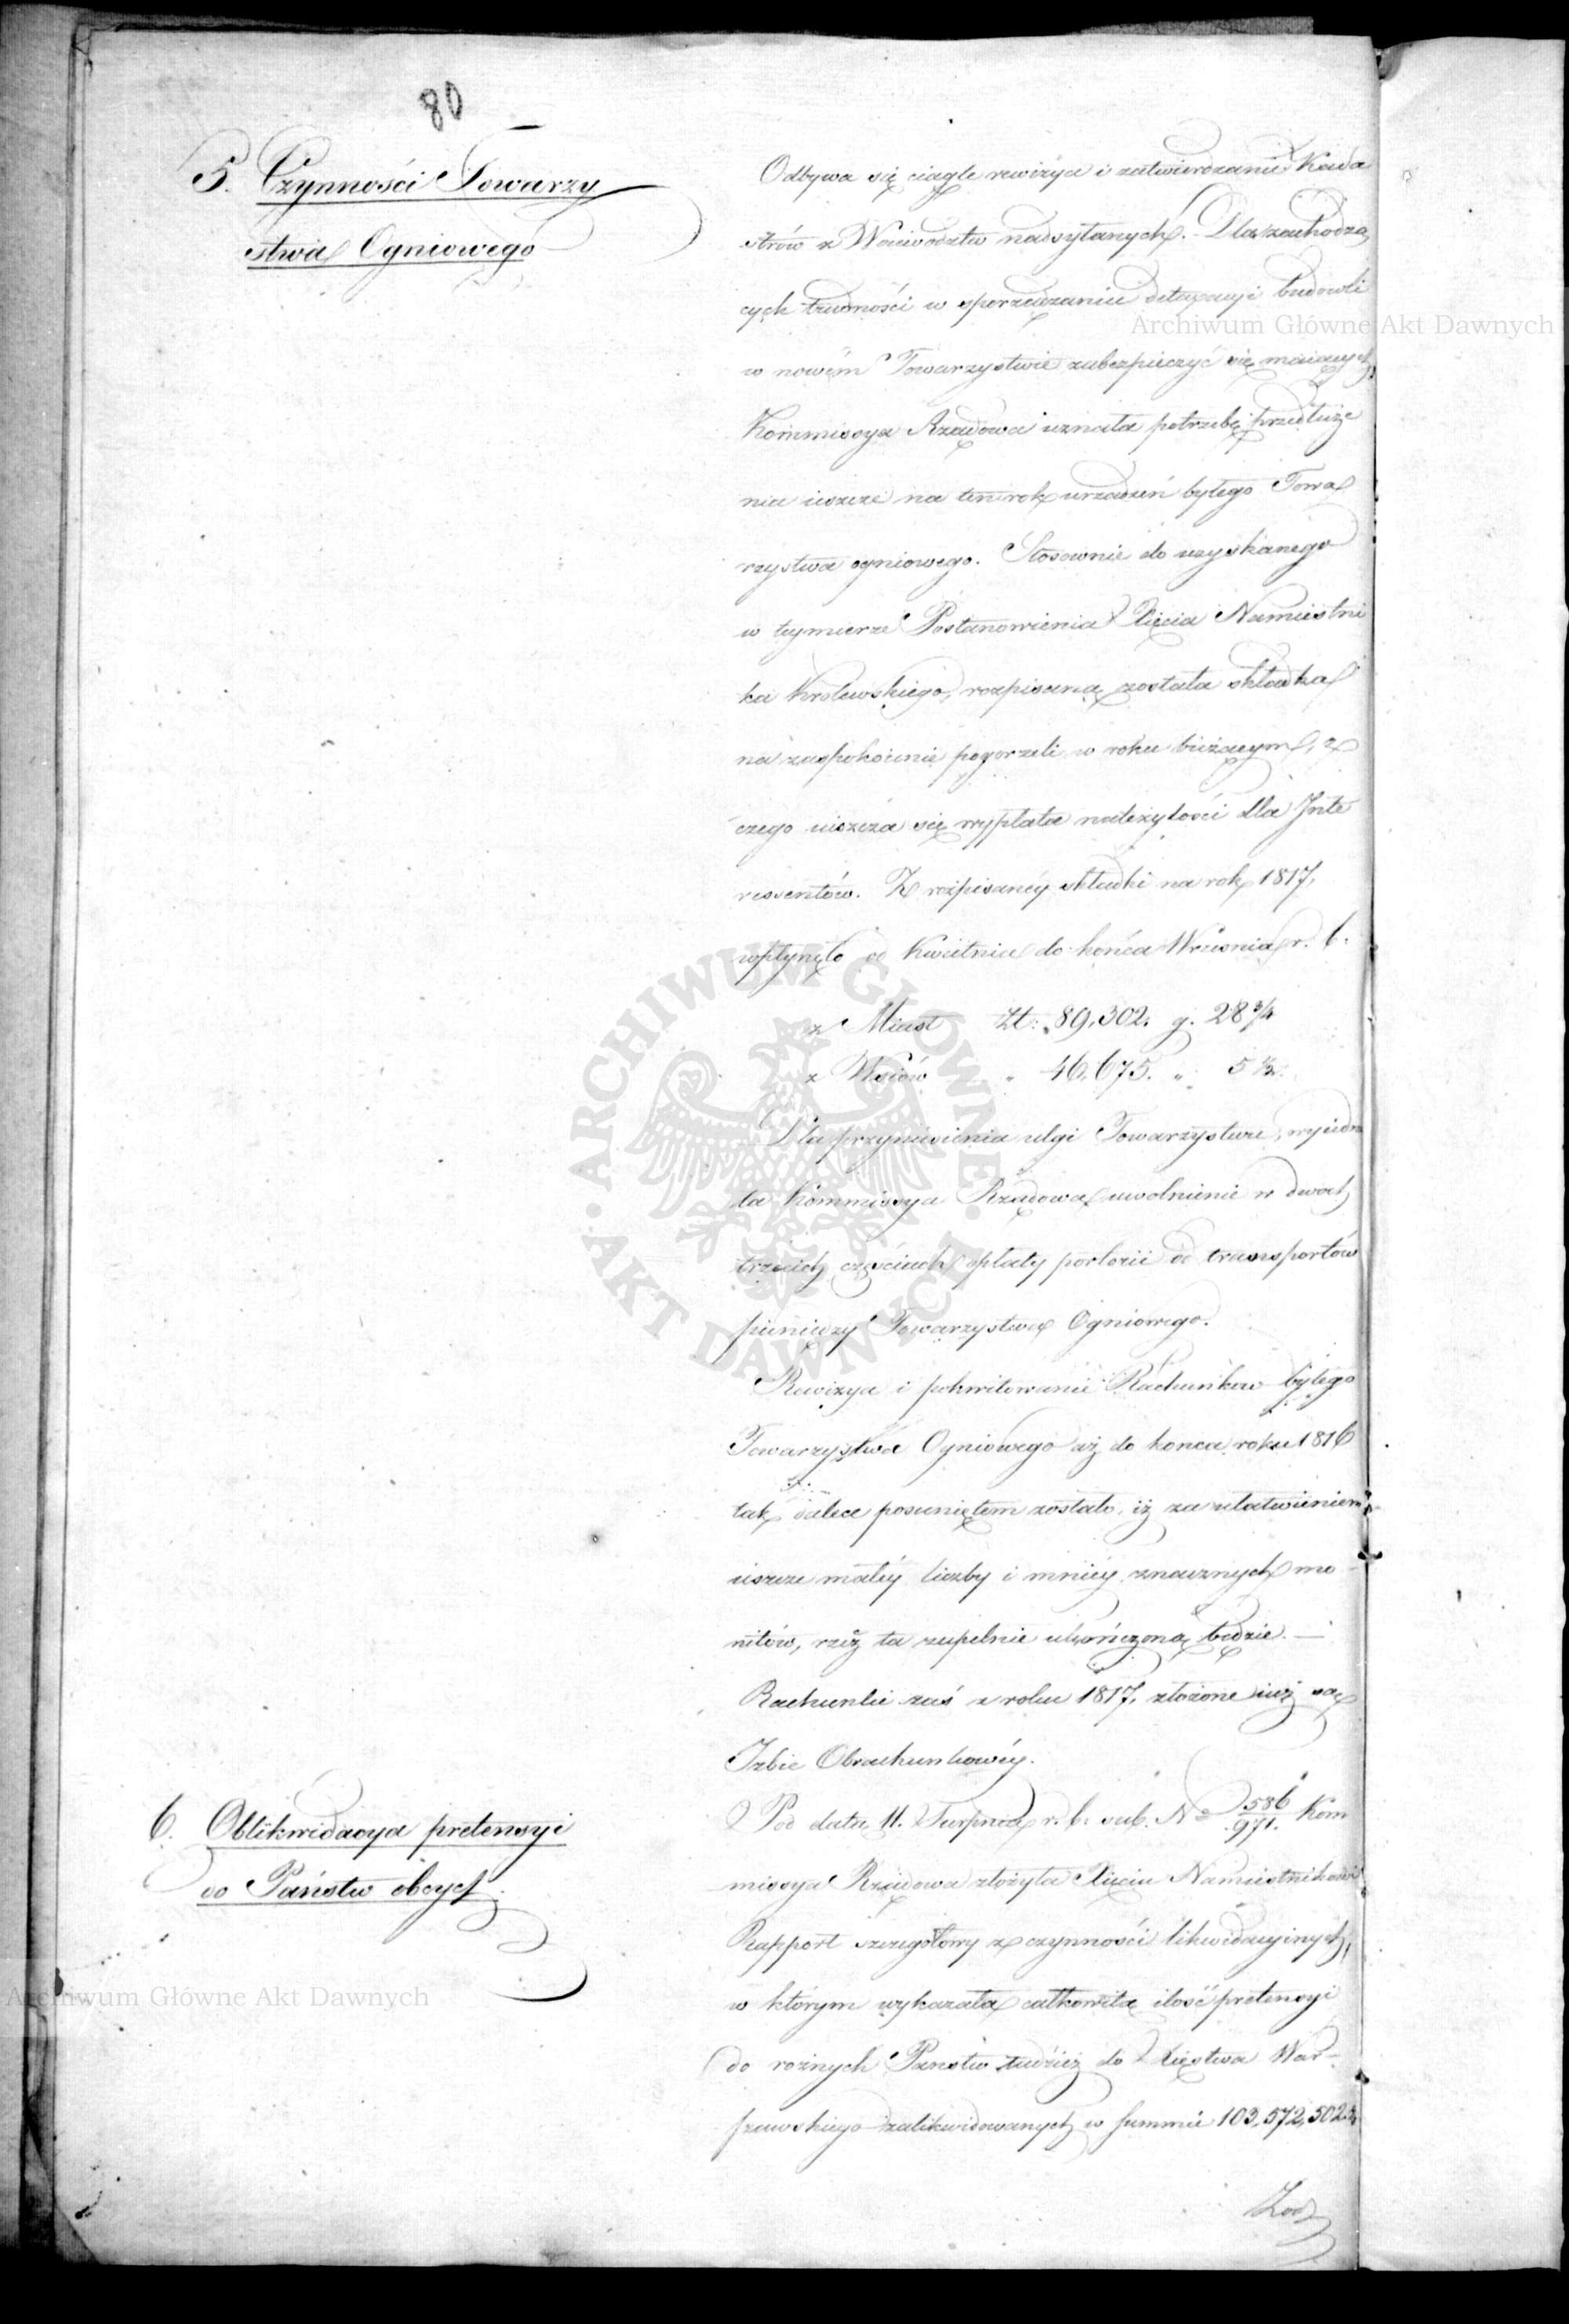 80
5. Czynności Towarzy
stwa Ogniowego
Odbywa się ciągle rewizya i zatwierdzanie Kada
strów z Woiewództw nadsyłanych. Dla zachodzą
cych trudności w sporządzaniu detaxacyi budowli
w nowém Towarzystwie zabezpieczyć się maiących,
Kommissya Rządowa uznała potrzebę przedłuże
nia ieszcze na ten rok urządzeń byłego Towa
rzystwa ogniowego. Stosownie do uzyskanego
w teymierze Postanowienia Xięcia Namiestni
ka Królewskiego, rozpisaną została składka
na zaspokoienie pogorzeli w roku bieżącym, z
czego uiszcza się wypłata należytości dla Inte
ressentów. Z rozpisanéy składki na rok 1817,
wpłynęło od Kwietnia do końca Września r. b.
z Miast Zł: 89,302. g. 28 3/4
z Wsiów " 46,675. " 5 1/2.
Dla przyniesienia ulgi Towarzystwu, wyiedna
ła Kommissya Rządowa uwolnienie w dwóch
trzecich częściach opłaty portorii od transportów
pieniędzy Towarzystwa Ogniowego.
Rewizya i pokwitowanie Rachunków byłego
Towarzystwa Ogniowego aż do końca roku 1816
tak dalece posuniętem zostało, iż za ułatwieniem
ieszcze małéy liczby i mniéy znacznych mo
nitów, rzecz ta zupełnie ukończoną będzie. —
Rachunki zaś z roku 1817, złożone iuż są
Izbie Obrachunkowéy.
6. Oblikwidacya pretensyi
do Państw obcych.
Pod datą 11. Sierpnia r. b. sub. No 586/971. Kom
missya Rządowa złożyła Xięciu Namiestnikowi
Rapport szczegółowy z czynności likwidacyinych,
w którym wykazała całkowitą ilość pretensyi
do rożnych Państw tudzież do Xięstwa War-
szawskiego zalikwidowanych w summie 103,572,502
Zło